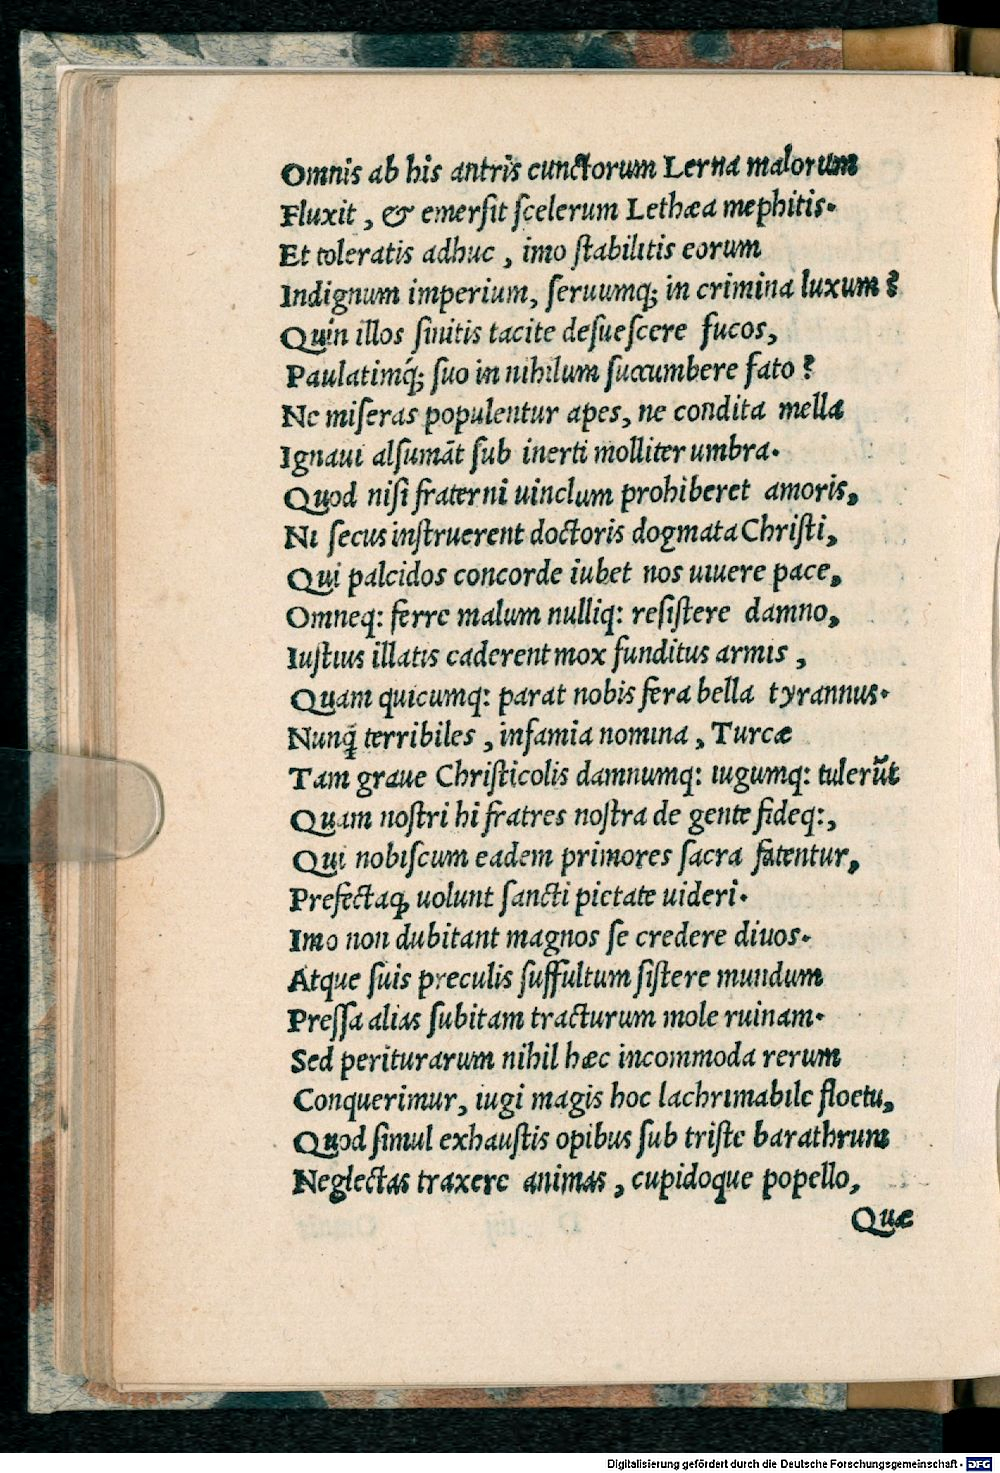 Omnis ab his antris cunctorum Lerna malorum
Fluxit , & emersit scelerum Lethæa mephitis.
Et toleratis adhuc , imo stabilitis eorum
Indignum imperium, seruumq; in crimina luxum?
Quin illos sinitis tacite desuescere fucos,
Paulatimq́; suo in nihilum succumbere fato?
Ne miseras populentur apes, ne condita mella
Ignaui alsumāt sub inerti molliter umbra.
Quod nisi fraterni uinclum prohiberet amoris,
Ni secus instruerent doctoris dogmata Christi,
Qui palcidos concorde iubet nos uiuere pace,
Omneq: ferre malum nulliq: resistere damno,
Iustius illatis caderent mox funditus armis ,
Quam quicumq: parat nobis fera bella tyrannus.
Nunq̃ terribiles , infamia nomina , Turcæ
Tam graue Christicolis damnumq: iugumq: tulerūt
Quam nostri hi fratres nostra de gente fideq:,
Qui nobiscum eadem primores sacra fatentur,
Prefectaq; uolunt sancti pietate uideri.
Imo non dubitant magnos se credere diuos.
Atque suis preculis suffultum sistere mundum
Pressa alias subitam tracturum mole ruinam.
Sed periturarum nihil hæc incommoda rerum
Conquerimur, iugi magis hoc lachrimabile floetu,
Quod simul exhaustis opibus sub triste barathrum
Neglectas traxere animas , cupidoque popello,
Quæ
Digitalisierung gefördert durch die Deutsche Forschungsgemeinschaft - DFG